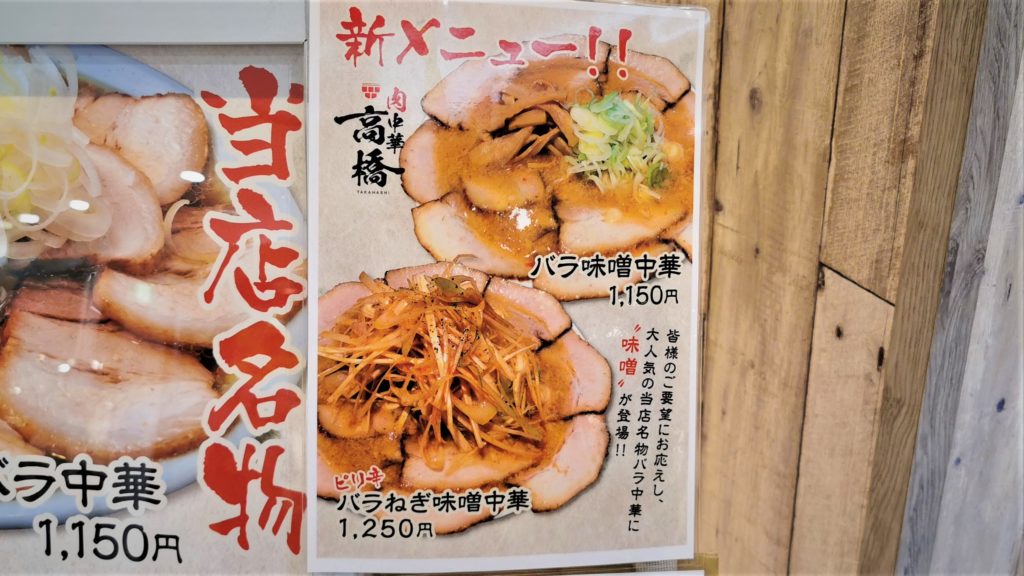 当店名物
バラ中華
1,150円
新メニュー!!
肉中華
高橋
TAKAHASHI
バラ味噌中華
1,150円
皆様のご要望にお応えし、
大人気の当店名物バラ中華に
"味噌"が登場!!
ピリ辛
バラねぎ味噌中華
1,250円